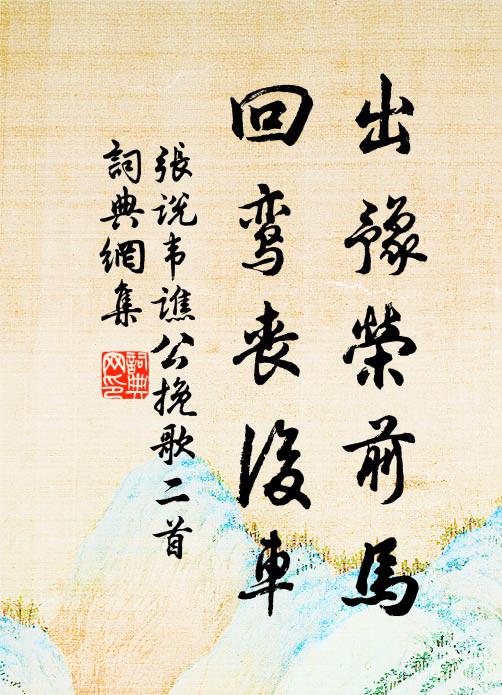 出豫榮前馬
回鸾丧後車
張说韦譙公挽歌二首
詞典網集
詞典网印